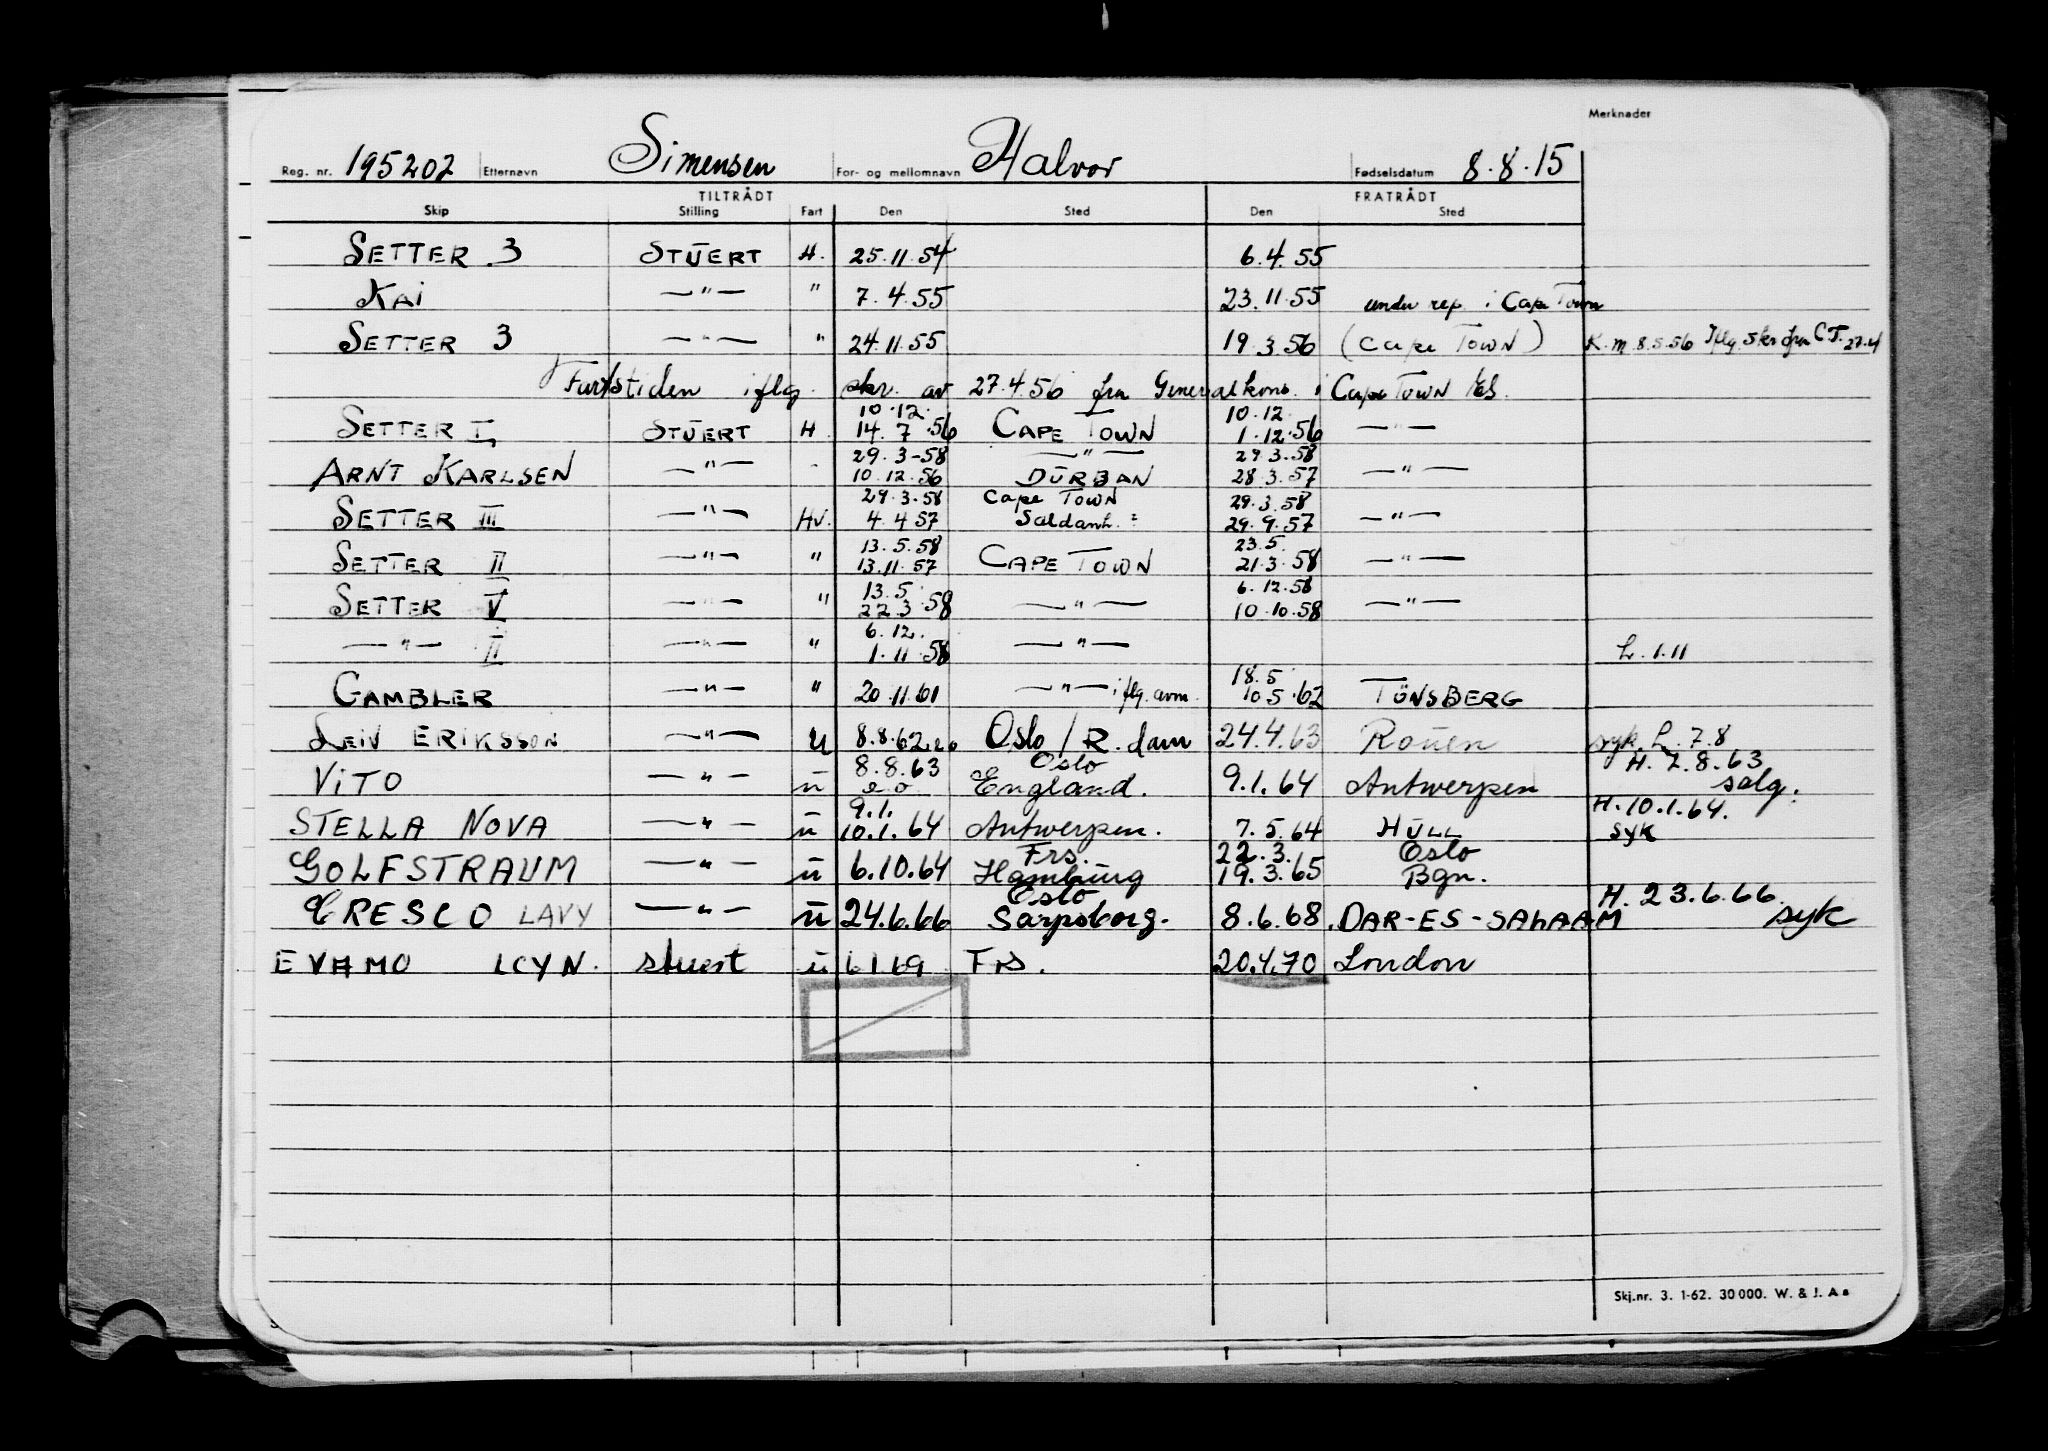 Merknader
Reg. nr. 195202 Etternavn Simensen For- og mellomnavn Halvor Fødselsdatum 8.8.15
TILTRÅDT FRATRÅDT
Skip Stilling Fart Den Sted Den Sted
SETTER 3 STUERT H. 25.11.54 6.4.55
KAI —"— " 7.4.55 23.11.55 under rep. i Cape Town
SETTER 3 —"— " 24.11.55 19.3.56 (Cape Town) K.m 8.5.56 Iflg. skr fra C.T. 27.4
Fartstiden iflg. skr. av 27.4.56 fra Generalkons. i Cape Town
10.12. 10.12.
SETTER I STUERT H 14.7.56 CAPE TOWN 1.12.56 —"—
29.3-58 —"— 29.3.58
ARNT KARLSEN —"— - 10.12.56 DURBAN 28.3.57 —"—
29.3.58 Cape Town 29.3.58
SETTER III —"— Hv. 4.4.57 Saldanh. 29.9.57 —"—
13.5.58 23.5.
SETTER II —"— " 13.11.57 CAPE TOWN 21.3.58 —"—
13.5 6.12.58
SETTER V —"— " 22.3.58 —"— 10.10.58 —"—
6.12.
—"— II —"— " 1.11.58 —"— L.1.11
18.5
GAMBLER —"— " 20.11.61 —"— iflg. avm. 10.5.62 TÖNSBERG
LEIV ERIKSSON —"— u 8.8.62 Oslo / R.dam 24.4.63 Rouen syk. L. 7.8
8.8.63 Oslo H. 7.8.63
VITO —"— u e.o. England. 9.1.64 Antwerpen salg.
9.1. H.10.1.64.
STELLA NOVA —"— u 10.1.64 Antwerpen. 7.5.64 HULL syk
Frs. 22.3. Oslo
GOLFSTRAUM —"— u 6.10.64 Hamburg 19.3.65 Bgn.
Oslo H. 23.6.66
CRESCO LAVY —"— u 24.6.66 Sarpsborg. 8.6.68 DAR-ES-SALAAM syk
EVAMO LCYN. stuert u 6.1.69 Frs. 20.4.70 London
Skj.nr. 3. 1-62. 30 000. W. & J. A s